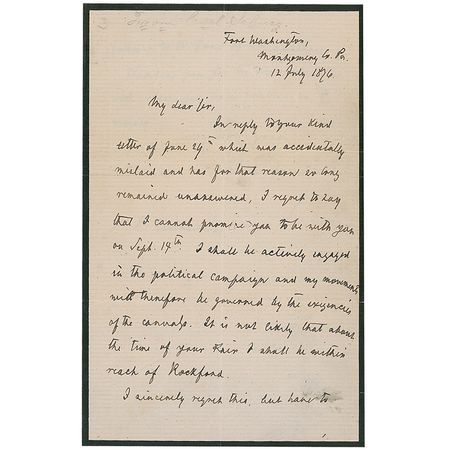 Fort Washington,
Montgomery Co. Pa.
12 July 1876.
My dear Sir,
In reply to your kind
letter of June 29th which was accidentally
mislaid and has for that reason so long
remained unanswered, I regret to say
that I cannot promise you to be with you
on Sept. 14th. I shall be actively engaged
in the political campaign and my movements
will therefore be governed by the exigencies
of the canvass. It is not likely that about
the time of your Fair I shall be within
reach of Rockford.
I sincerely regret this, but have to